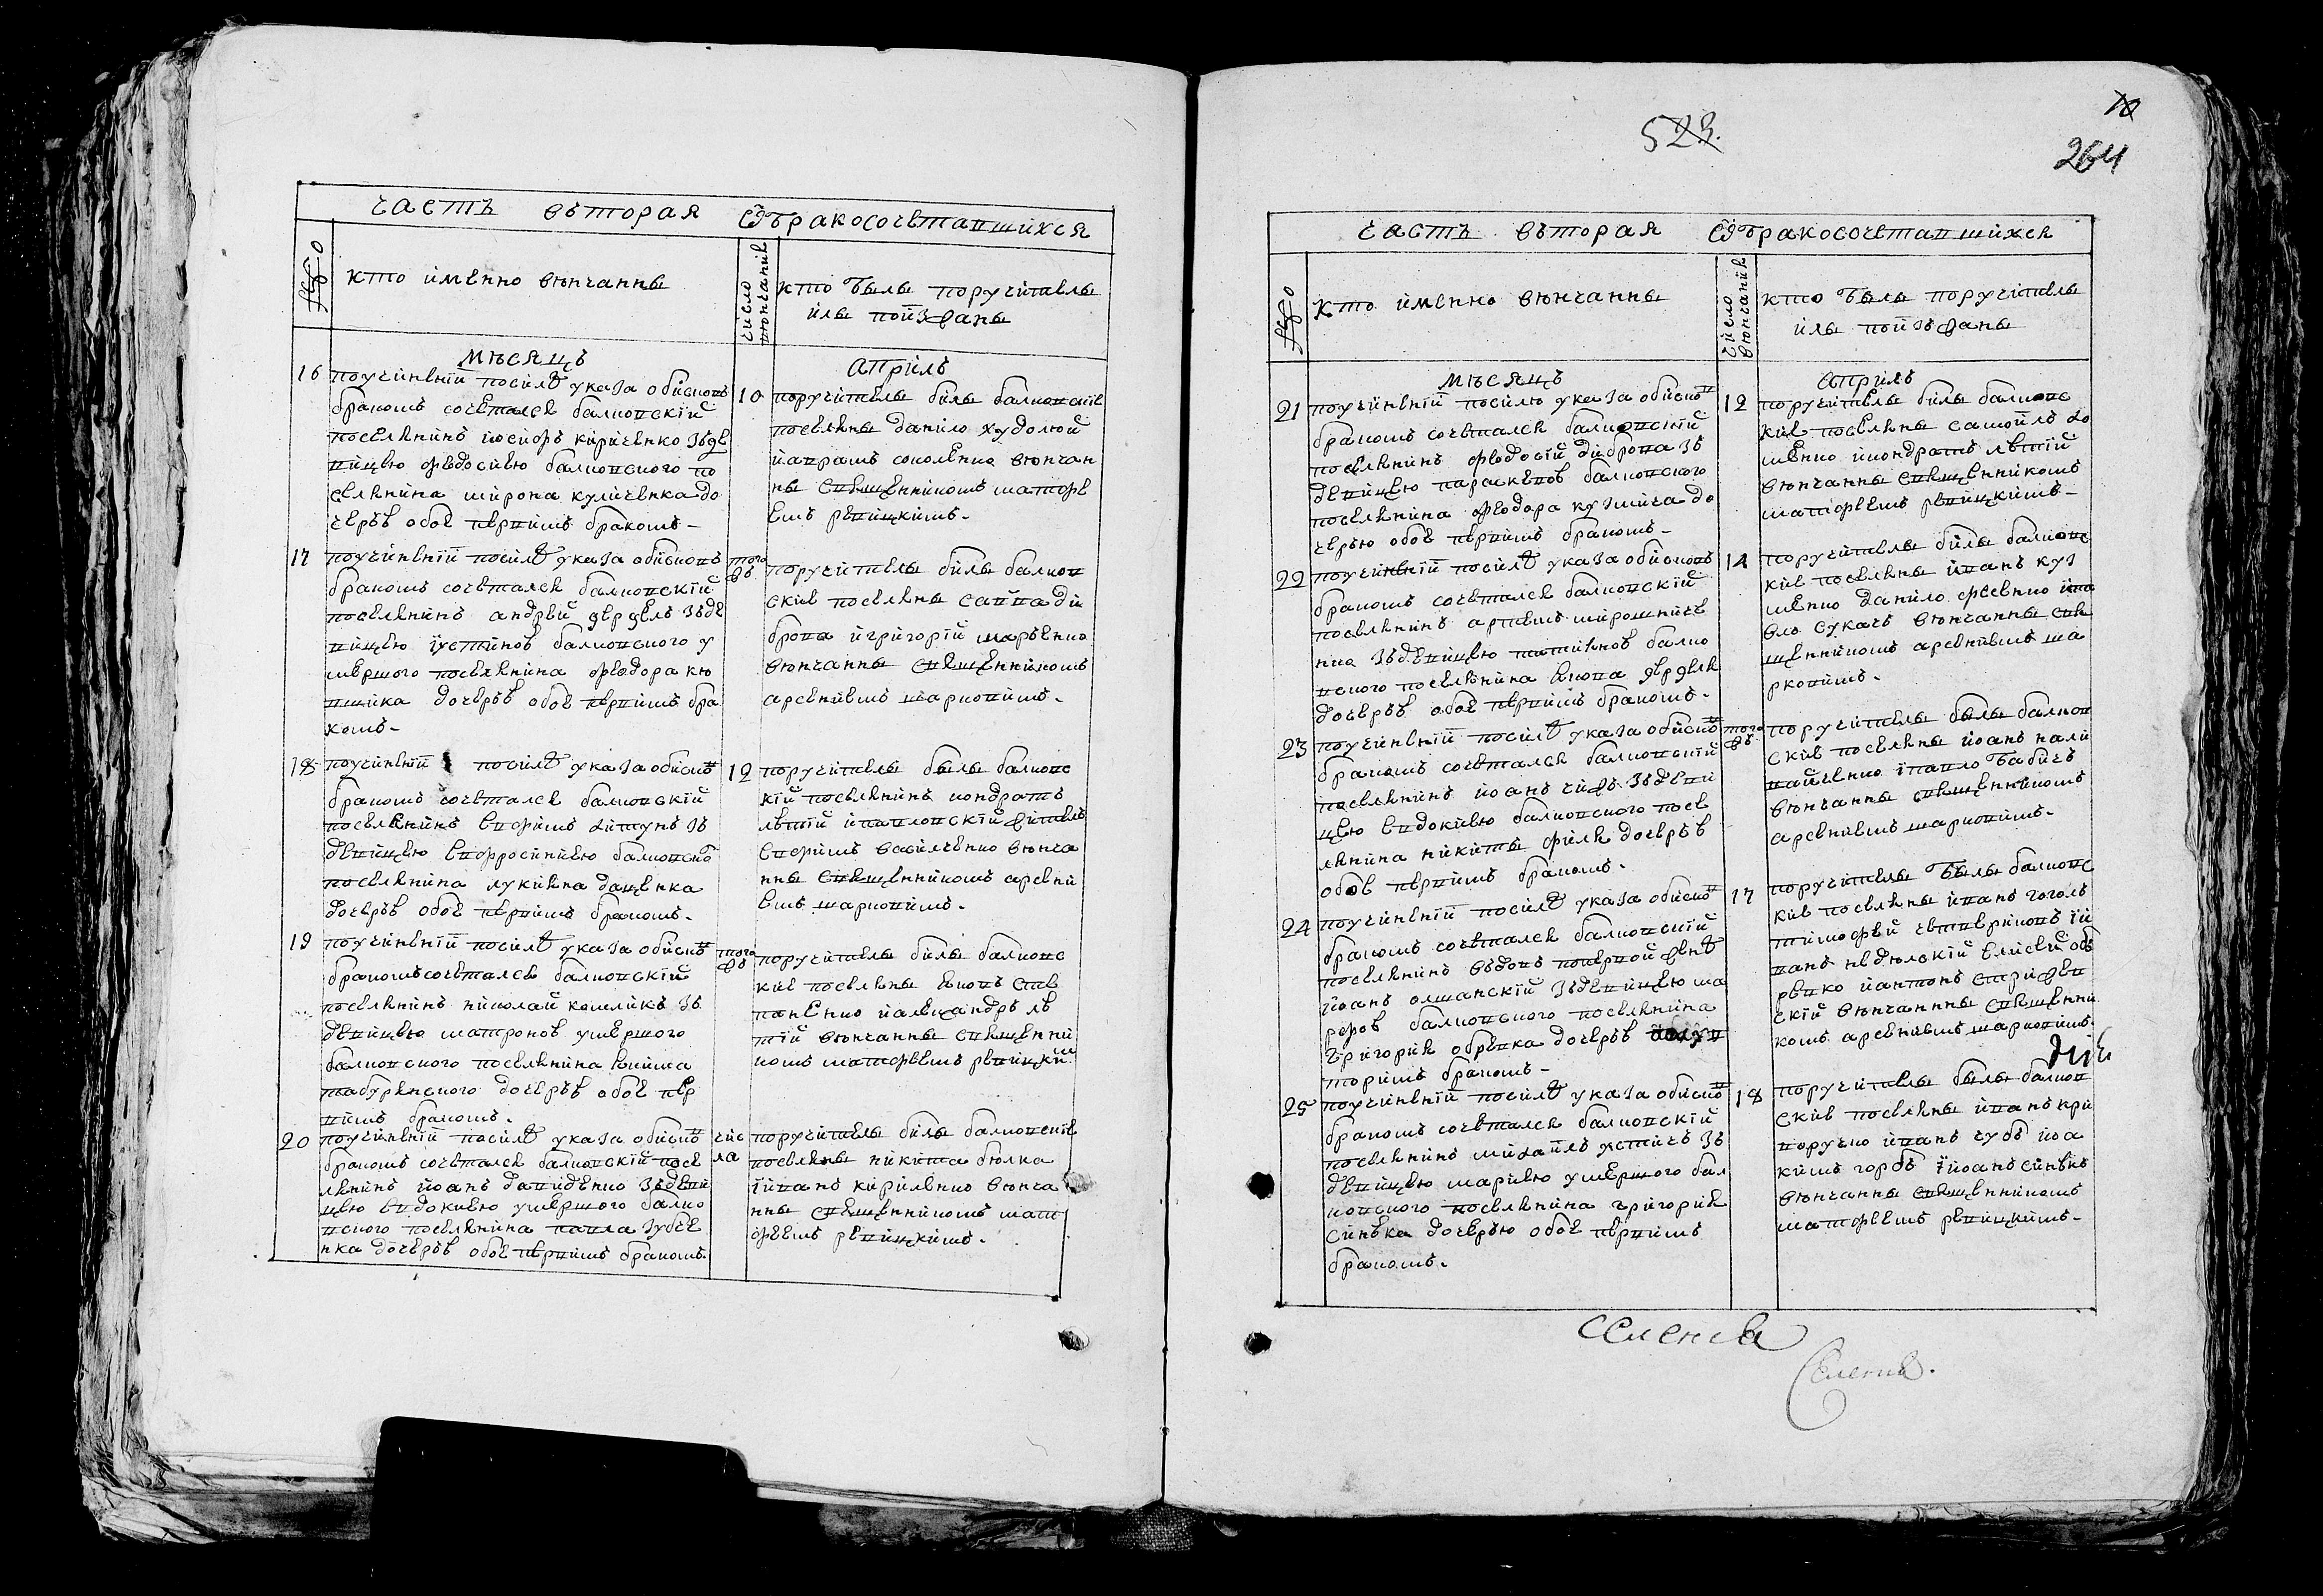 часть вторая Ѡ бракосочетавшихся
кто именно венчанны
число венчания
кто были поручители
или поизжаны
месяць
априль
16 по учиненiй по силе указа обисковъ
бракомъ сочетался балковскiй
поселянинъ иосифъ кириченко зъ де
вицею феодосиею балковского по
селянина мирона куличенка до
черъю обое первимъ бракомъ
10 поручители били балковскiе
поселяны данило худолюй
и апрамъ соколенко венчан
ны священникомъ матфе
емъ ревицкимъ
17 по учиненiй по силе указа обисковъ
бракомъ сочетался балковскiй
поселянинъ андрей дердель зъ де
вицею iустиною балковского у
мершого поселянина феодора кю
пшика дочерью обое первимъ бра
комъ
того жъ
поручители били балков
скiе поселяны савва ди
брова и григорiй марченко
венчанны священникомъ
арсениемъ марковимъ
18 по учиненiй по силе указа обисков
бракомъ сочетался балковскiй
поселянинъ ефимъ литунъ зъ
девицею ефросиниею балковско
поселянина лукияна даценка
дочерью обое первимъ бракомъ
12 поручители были балковс
кiй поселянинъ кондратъ
летiй и павловскiй житель
ефимъ василченко венча
нны священникомъ арсени
емъ марковимъ
19 по учиненiй по силе указа обисков
бракомъ сочетался балковскiй
поселянинъ николай комликъ зъ
девицею матроною умершого
балковского поселянина якима
табуранского дочерью обое пер
вимъ бракомъ
того жъ
поручители били балковс
кiе поселяны яковъ сте
паненко и александръ ле
тiй венчанны священни
комъ матфеемъ ревицким
20 по учиненiй по силе указа обисков
бракомъ сочетался балковскiй посе
лянинъ иоанъ давиденко зъ деви
цею евдокиею умершого балко
вского поселянина павла зубче
нка дочерью обое первимъ бракомъ
чис
ла
поручители били балковскiе
поселяны никита бюлка
iиванъ кириленко венча
нны священникомъ мат
феемъ ревицкимъ
523
10
264
часть вторая Ѡ бракосочетавшихся
кто именно венчанны
число венчания
кто были поручители
или поизъжаны
месяць
априль
21 по учиненiй по силю указа обисков
бракомъ сочетался балковскiй
поселянинъ феодосiй диброва зъ
девицею параскевою балковского
поселянина феодора кузмича до
черъю обое первимъ бракомъ
12 поручители били балковс
кие поселяны самойлъ до
менко и кондратъ летiй
венчанны священникомъ
матфеемъ ревицкимъ
22 по учиненiй по силе указа обисковъ
бракомъ сочетался балковскiй
поселянинъ артемъ мирошниче
нко зъ девицею татияною балко
вского поселянина якова дерделя
дочерью обое первимъ бракомъ
14 поручители били балковс
кие поселяны иванъ куз
менко данило фесенко и па
вло сукачъ венчанны свя
щенникомъ арсениемъ ма
рковимъ
23 по учиненiй по силе указа обисков
бракомъ сочетался балковскiй
поселянинъ иоанъ чижъ зъ деви
цею евдокиею балковского посе
лянина никиты филя дочерью
обое первимъ бракомъ
того жъ
поручители были балков
скiе поселяны иоанъ нали
вайченко iпавло бабичъ
венчанны священникомъ
арсениемъ марковимъ
24 по учиненiй по силе указа обисков
бракомъ сочетался балковскiй
поселянинъ вдовъ по первой жене
иоанъ олшанскiй зъ девицею ма
рфою балковского поселянина
григория обревка дочерью
торимъ бракомъ
17 поручители были балковс
кие поселяны иванъ гоголь
тимофей четвериковъ iи
ванъ недюлскiй елисей об
ревко и антонъ стрижев
скiй венчанны священни
комъ арсениемъ марковимъ
25 по учиненiй по силе указа обисков
бракомъ сочетался балковскiй
поселянинъ михайлъ устичъ зъ
девицею мариею умершого бал
ковского поселянина григория
синька дочерью обое первимъ
бракомъ
18 поручители были балков
скiе поселяны иванъ кри
воручко иванъ чубъ иоа
кимъ горбъ iиоанъ синько
венчанны священникомъ
матфеемъ ревицкимъ